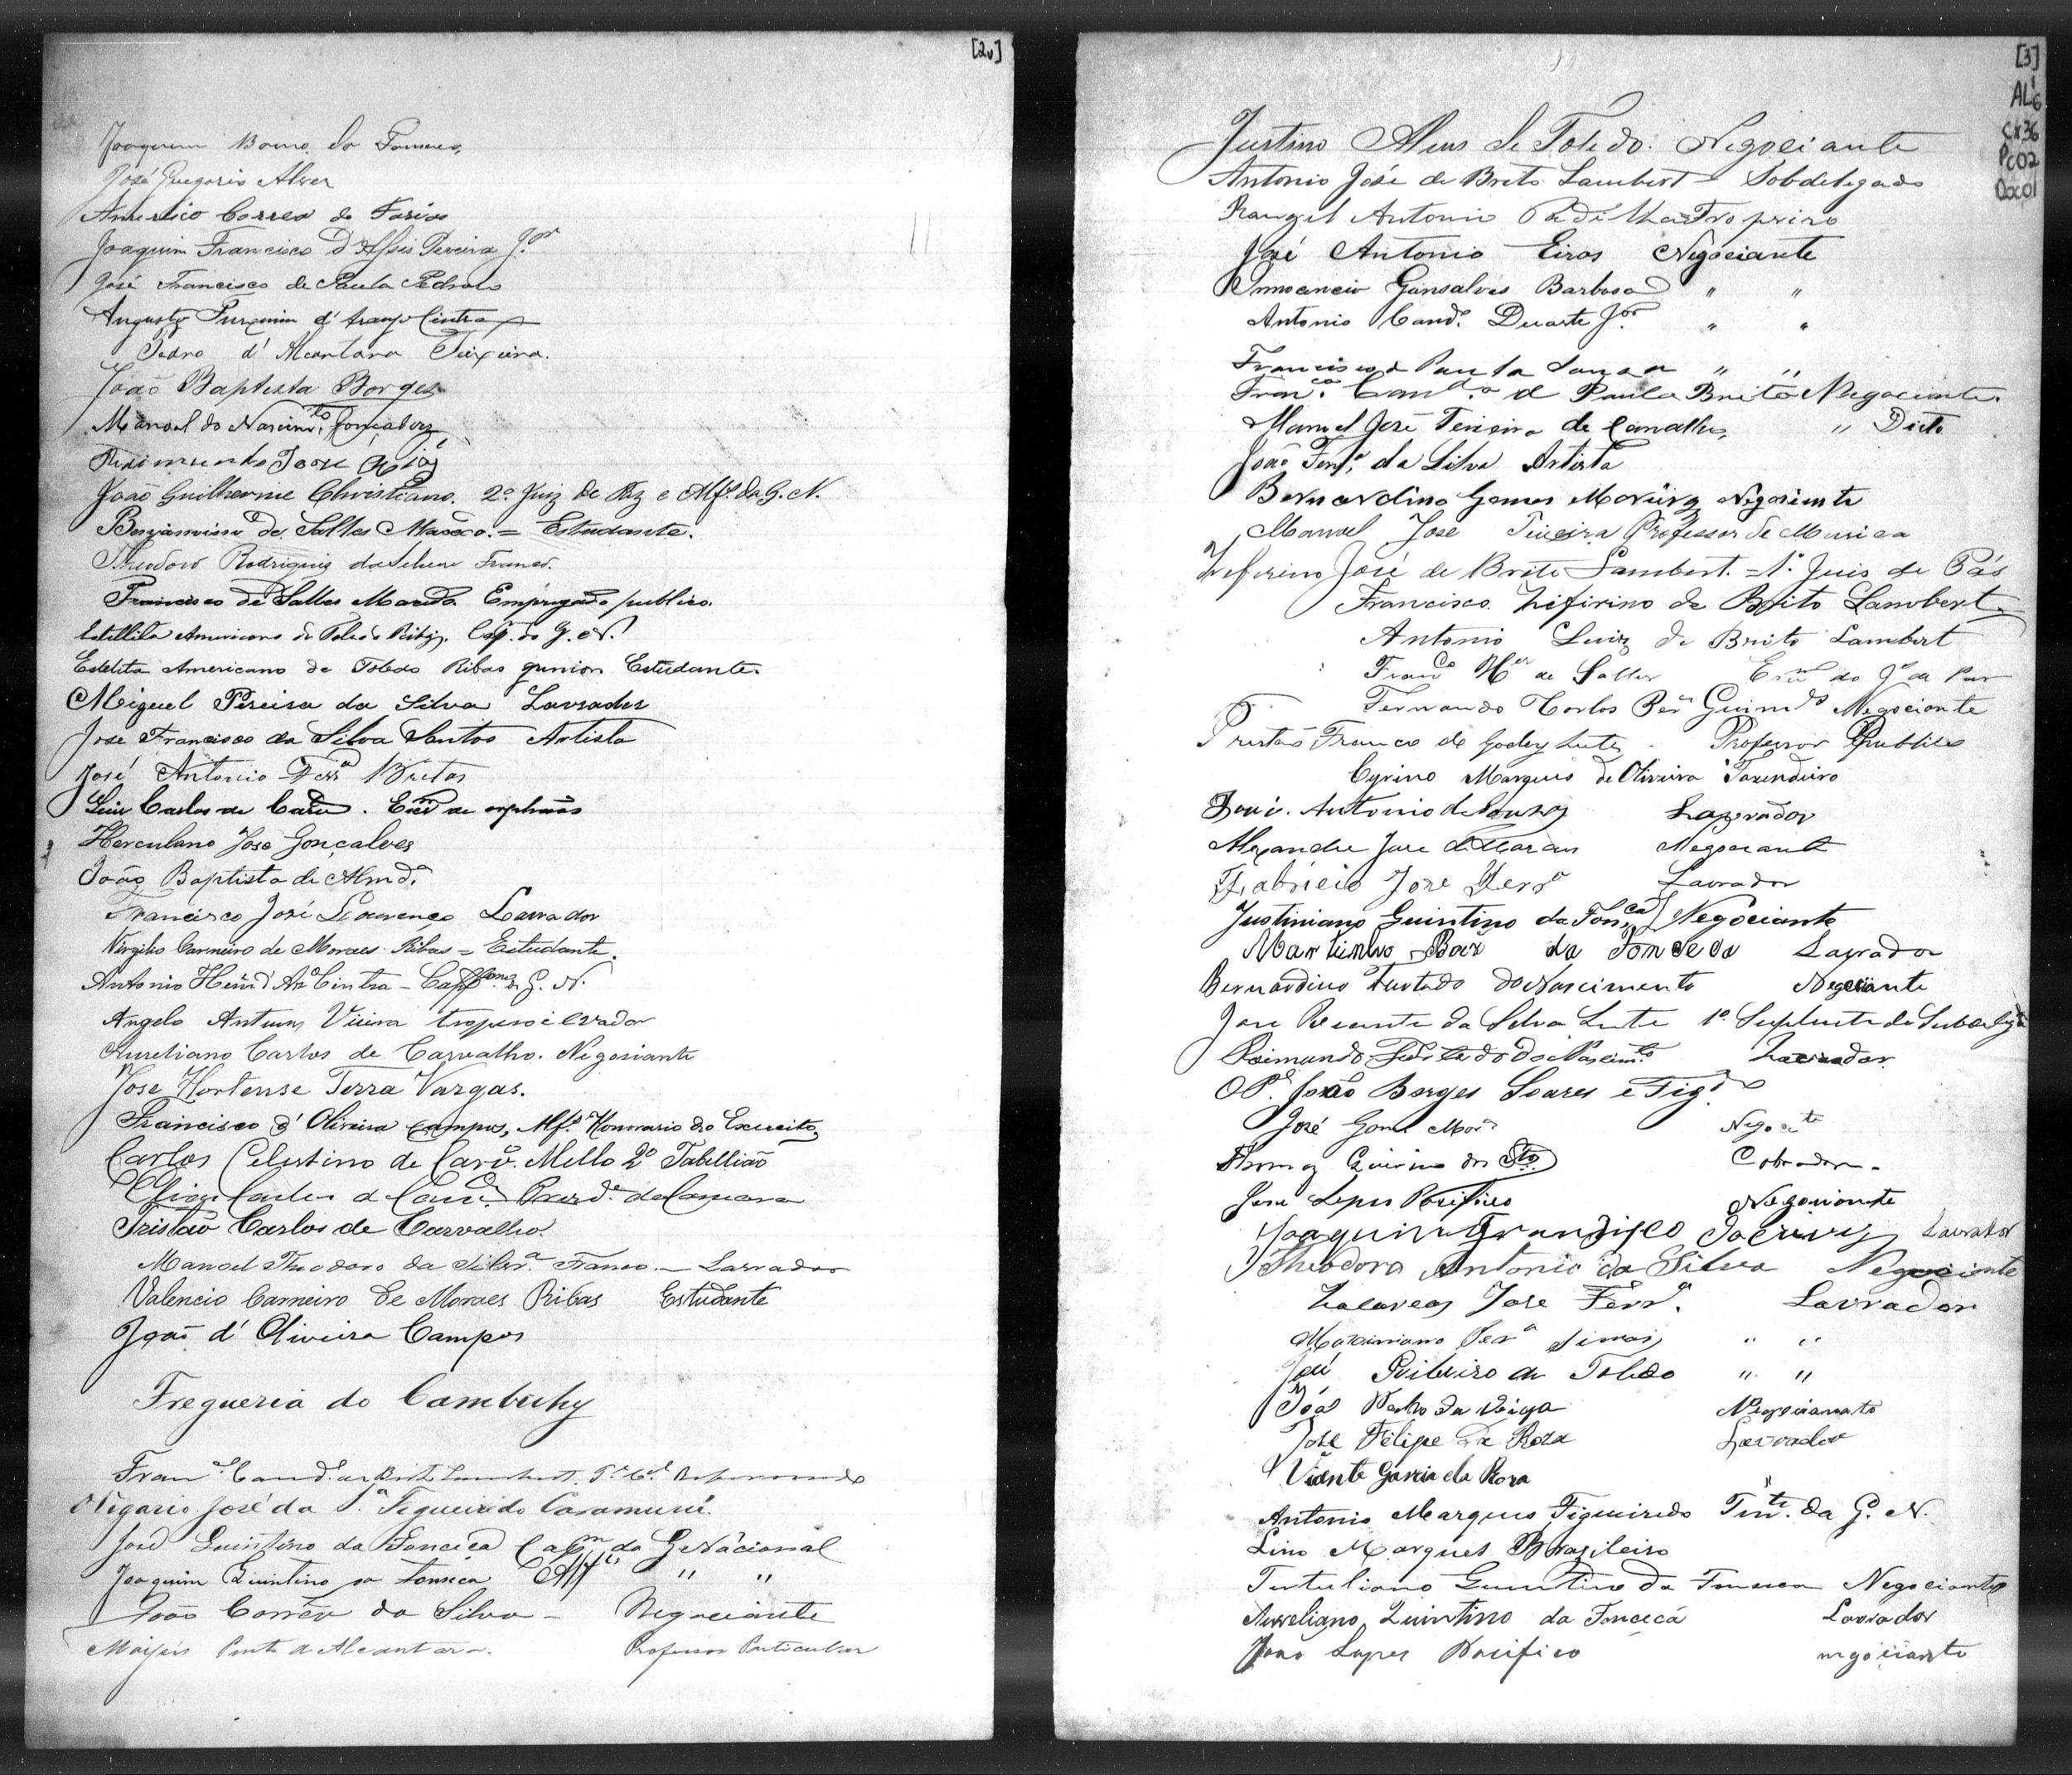 [2v]
Joaquim Bueno da Fonseca
José Gregorio Alves
Americo Correa de Farias
Joaquim Francisco d'Assis Pereira J.or
José Francisco de Paula Pedroso
Augusto Furquim d'Araujo Cintra
Pedro d'Alcantara Teixeira.
João Baptista Borges
Manoel do Nascim.to Gonçalves
Raimundo José
João Guilherme Christiano. 2º Juiz de Paz e Alf.s da G. N.
Benjamim de Salles Macedo. = Estudante.
Theodoro Rodrigues da Silva Franco.
Francisco de Salles Macedo. Empregado publico.
Estellita Americano de Toledo Ribas, Cap. da G. N.
Estelita Americano de Toledo Ribas Junior Estudante.
Miguel Pereira da Silva Lavrador
José Francisco da Silva Santos Artista
José Antonio Ferr.a Bretas
Luiz Carlos de . Escr. de orphãos
Herculano José Gonçalves
João Baptista de Almd.a
Francisco José Lourenço Lavrador
Virgilio Carneiro de Moraes Ribas = Estudante.
Antonio d'Ar. Cintra - Cap. G. N.
Angelo Antunes Vieira tropeiro e lvrador
Aureliano Carlos de Carvalho. Negosiante
José Hortense Terra Vargas.
Francisco d'Oliveira Campos, Alf.s Honorario do Exercito,
Carlos Celestino de Carv.o Mello 2º Tabellião
Carlos de Carv.o da Camara
Tristão Carlos de Carvalho.
Manoel Theodoro da Silvr.a Franco. - Lavrador
Valencio Carneiro de Moraes Ribas Estudante
João d'Oliveira Campos
Fregueria do Cambuhy
Fran.co Cand.o de Brito Lambert. T.e C.el Reformado
Olegario José da S.a Figueiredo Casamuni.
José Quintino da Fonceca Capm da G. Nacional
Joaquim Quintino da Fonseca Alfs " "
João Corrêa da Silva - Negociante
Moysés Pinto de Alcantara. Professor Particular
[3]
AL16
CX36
PC02
Doc01
Justino Alves de Toledo. Negociante
Antonio José de Brito Lambert - Sobdelegado
Rangel Antonio Padilha Tropeiro
José Antonio Eiras Negociante
Innocencio Gonsalves Barbosa " "
Antonio Cand.o Duarte J.or " "
Francisco de Paula Souza " "
Fran.co Cand.o de Paula Brito Negociante.
Manoel José Teixeira de Carvalho, " Dicto
João Ferr.a da Silva Artista
Bernardino Gomes Moreira Negosiante
Manoel José Teixeira Professor de Musica
Zeferino José de Brito Lambert. = 1º Juis de Pás
Francisco Zifirino de Brito Lambert
Antonio Luiz de Brito Lambert
Franco de Salles Escr.m do J.o de Paz
Fernando Carlos Per.a Guim.es Negociante
Tristão Franco de Godoy Leite. Professor Publico
Cyrino Marques de Oliveira Fazendeiro
Antonio de Souza Lavrador
Alexandre José de Moraes Negociante
Fabricio José Ferr.a Lavrador
Justiniano Quintino da Fonca Negociante
Martinho da Fonseca Lavrador
Bernardino Furtado do Nascimento Negociante
José Rezende da Silva Leite 1º Suplente do Subdelegdo
Raimundo Furtado do Nascimto Lavrador.
O P.e João Borges Soares e Figd.o
José Gomes Mor.a Negocte
Thomaz Quirino dos Stos Cobrador.
José Lopes Pacifico Negociante
Joaquim Francisco Lavrador
Theodoro Antonio da Silva Negociante
Zacareas José Ferr.a Lavrador
Maximiano Per.a Simões " "
José Ribeiro de Toledo " "
José Pedro da Veiga Negociante
José Felipe da Roza Lavrador
Vicente Garcia da Roza "
Antonio Marques Figueiredo Tente. da G. N.
Lino Marques Brazileiro
Tertuliano Quintino da Fonseca Negociante
Aureliano Quintino da Fonceca Lavrador
João Lopes Pacifico negociante